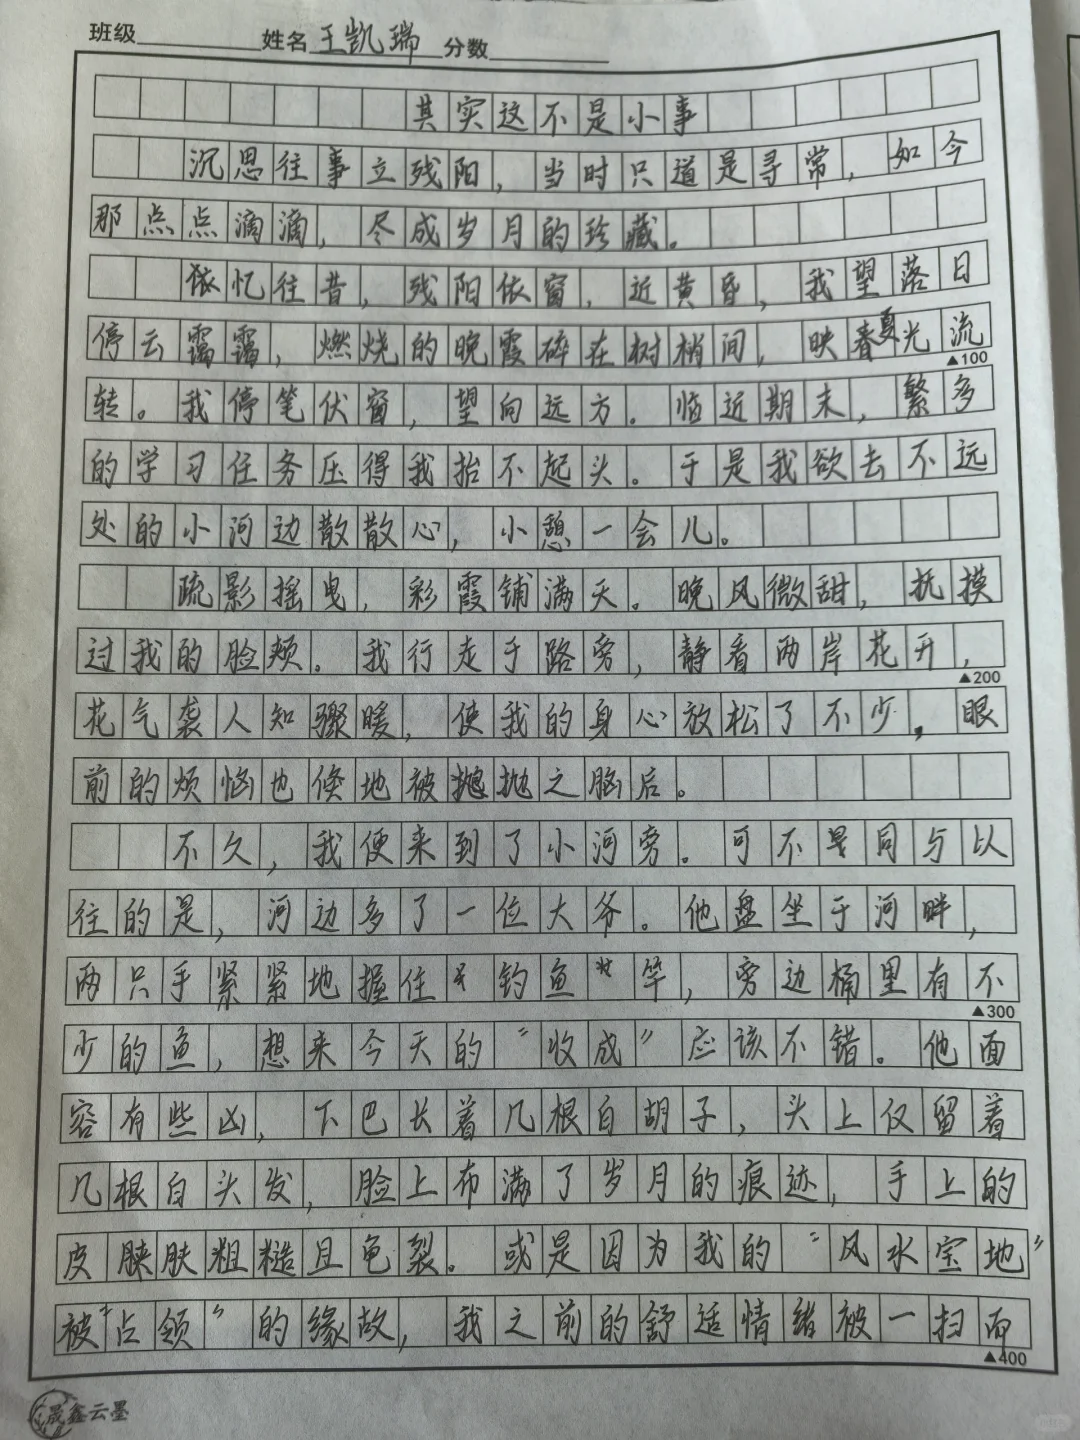 班级 姓名 王凯瑞 分数
其实这不是小事
沉思往事立残阳，当时只道是寻常，如今
那点点滴滴，尽成岁月的珍藏。
依忆往昔，残阳依窗，近黄昏，我望落日
停云霭霭，燃烧的晚霞碎在树梢间，映春夏光流
▲100
转。我停笔伏窗，望向远方。临近期末，繁多
的学习任务压得我抬不起头。于是我欲去不远
处的小河边散散心，小憩一会儿。
疏影摇曳，彩霞铺满天。晚风微甜，抚摸
过我的脸颊。我行走于路旁，静看两岸花开，
▲200
花气袭人知骤暖，使我的身心放松了不少，眼
前的烦恼也倏地被抛之脑后。
不久，我便来到了小河旁。可不同与以
往的是，河边多了一位大爷。他盘坐于河畔，
两只手紧紧地握住钓鱼竿，旁边桶里有不
▲300
少的鱼，想来今天的“收成”应该不错。他面
容有些凶，下巴长着几根白胡子，头上仅留着
几根白头发，脸上布满了岁月的痕迹，手上的
皮肤粗糙且龟裂。或是因为我的“风水宝地”
被“占领”的缘故，我之前的舒适情绪被一扫而
▲400
晟鑫云墨